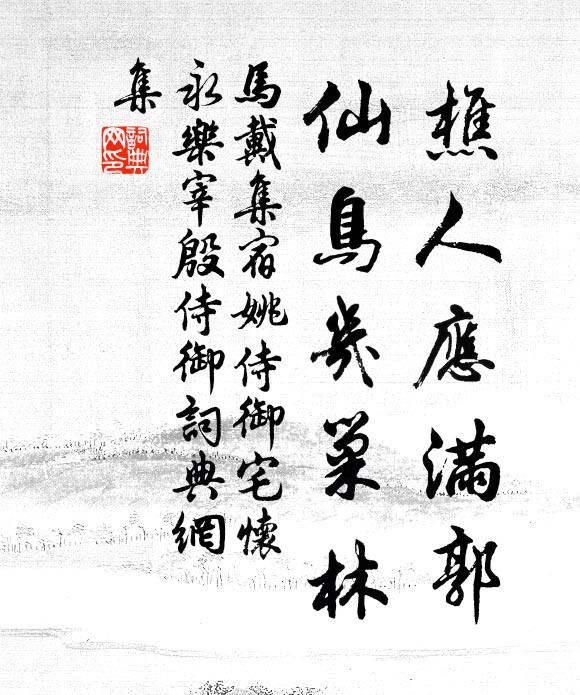 樵人應滿郭
仙鳥幾巢林
馬戴集宿姚侍御宅懷
永樂宰殷侍御詞典網
集
詞典網印